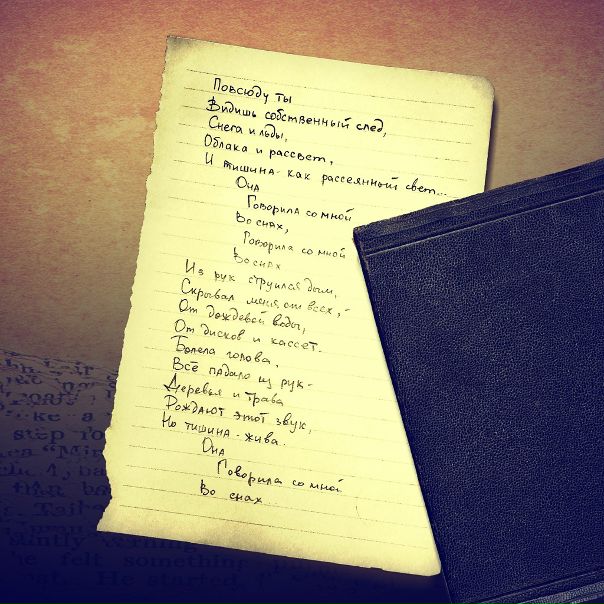 Повсюду ты
Видишь собственный след,
Снега и льды,
Облака и рассвет,
И тишина - как рассеянный свет...
Она
Говорила со мной
Во снах,
Говорила со мной
Во снах
Из рук струился дым,
Скрывал меня от всех,-
От дождевой воды,
От дисков и кассет.
Болела голова,
Всё падало из рук-
Деревья и трава
Рождают этот звук,
Но тишина - жива.
Она
Говорила со мной
Во снах
ke a
step
"Min
ba
Tail
felt something
He started